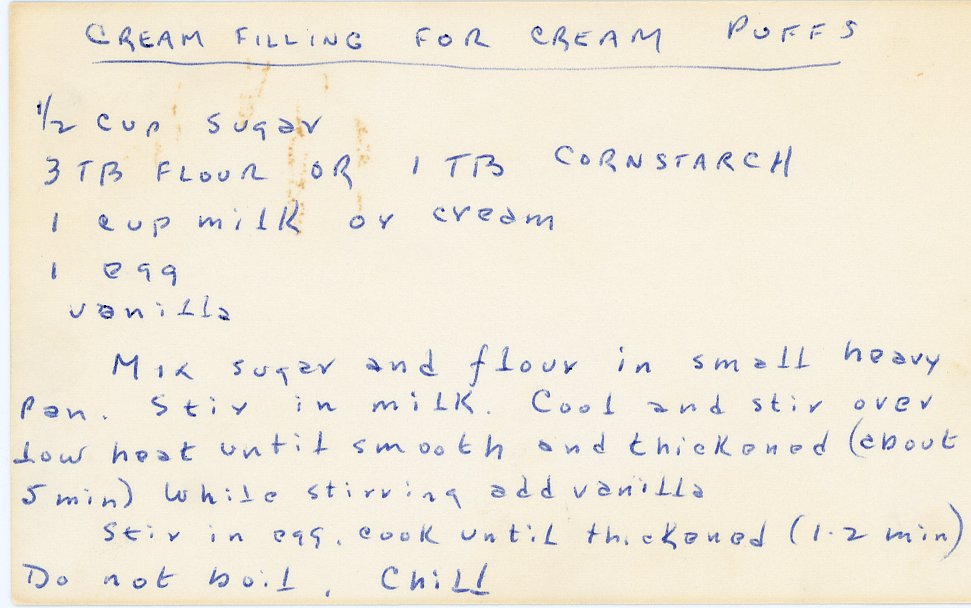 CREAM FILLING FOR CREAM PUFFS
1/2 cup sugar
3 TB FLOUR OR 1 TB CORNSTARCH
1 cup milk or cream
1 egg
vanilla
Mix sugar and flour in small heavy
pan. Stir in milk. Cool and stir over
low heat until smooth and thickened (about
5 min) While stirring add vanilla
Stir in egg. cook until thickened (1-2 min)
Do not boil. Chill